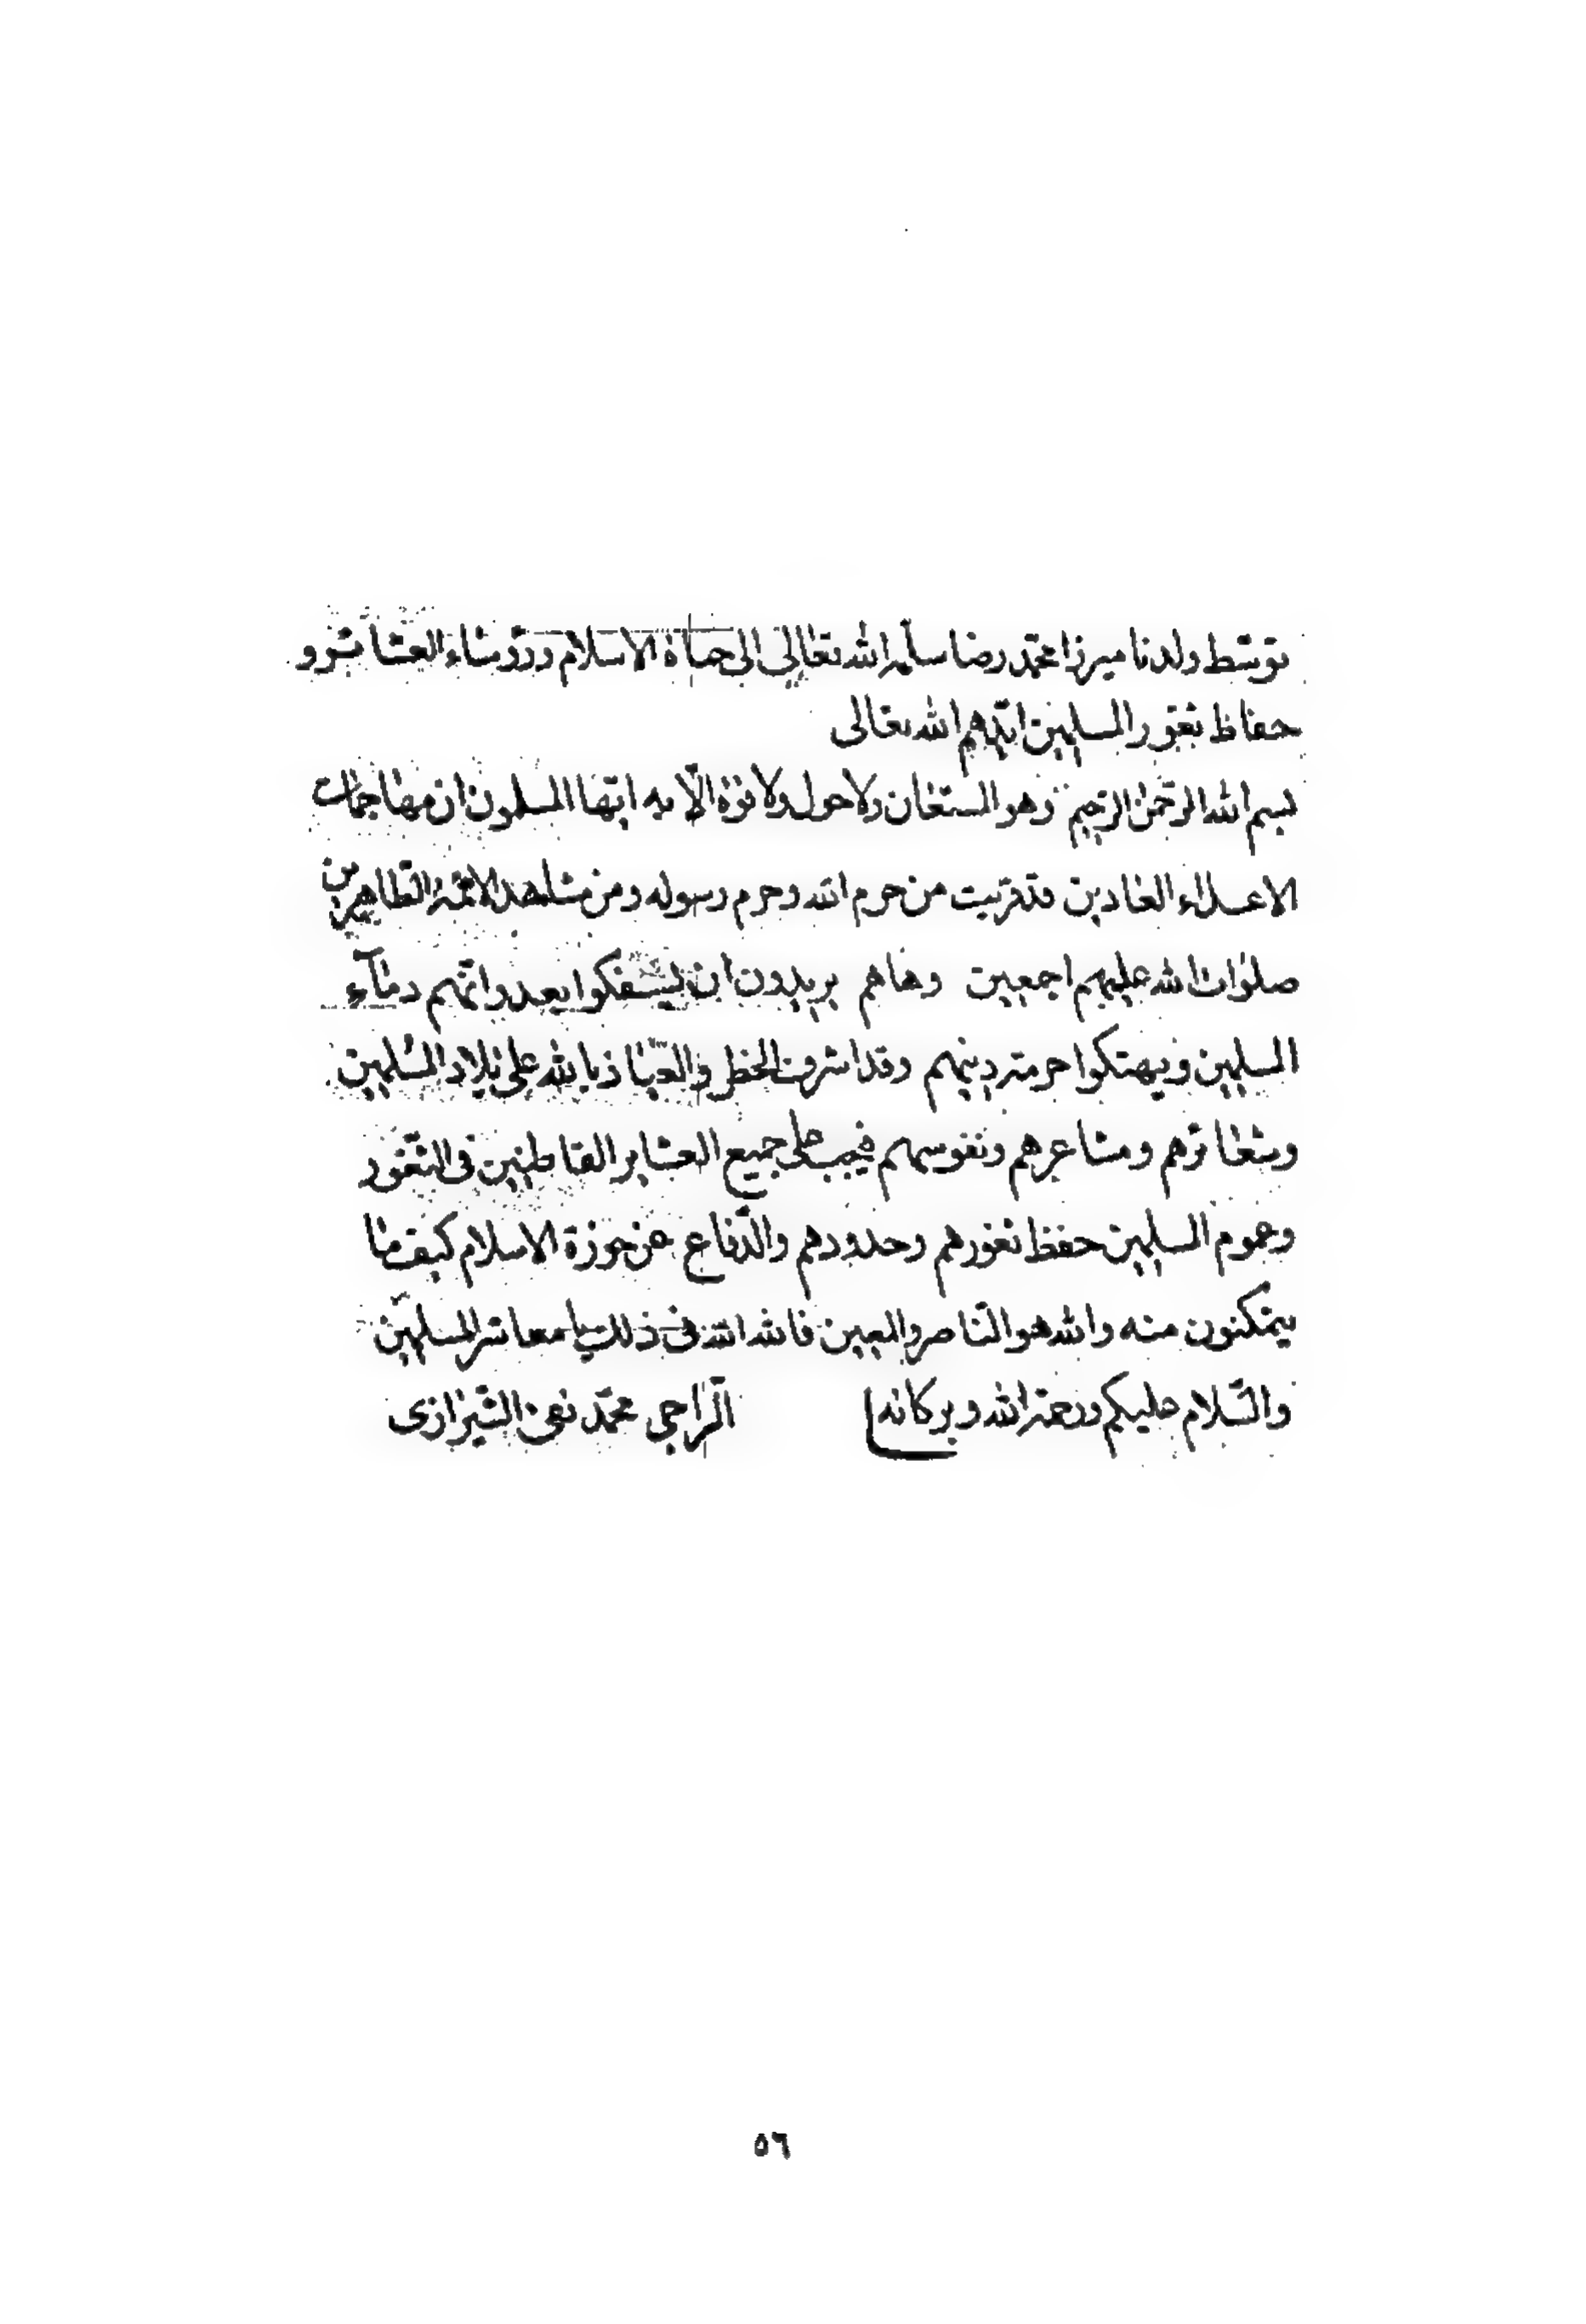 توسّط ولدنا ميرزا محمّد رضا سلّمه الله تعالى الى حماة الاسلام ورؤساء العشائر و
حفاظ ثغور المسلمين ايّدهم الله تعالى
بسم الله الرّحمن الرّحيم وهو المستعان ولا حول ولا قوّة الّا به ايّها المسلمون ان مهاجمات
الاعداء العادين قد قربت من حرم الله وحرم رسوله ومن مشاهد الائمّة الطّاهرين
صلوات الله عليهم اجمعين وها هم يريدون ان يسفكوا بعدوانهم دماء
المسلمين ويهتكوا حرمة دينهم وقد اشرف الخطر والعياذ بالله على بلاد المسلمين
وشعائرهم ومشاعرهم ونفوسهم فيجب على جميع العشاير القاطنين في الثّغور
وعموم المسلمين حفظ ثغورهم وحدودهم والدّفاع عن حوزة الاسلام كيف ما
يتمكنون منه والله هو النّاصر والمعين فالله الله في ذلك يا معاشر المسلمين
والسّلام عليكم ورحمة الله وبركاته الرّاجي محمّد تقي الشّيرازى
٥٦